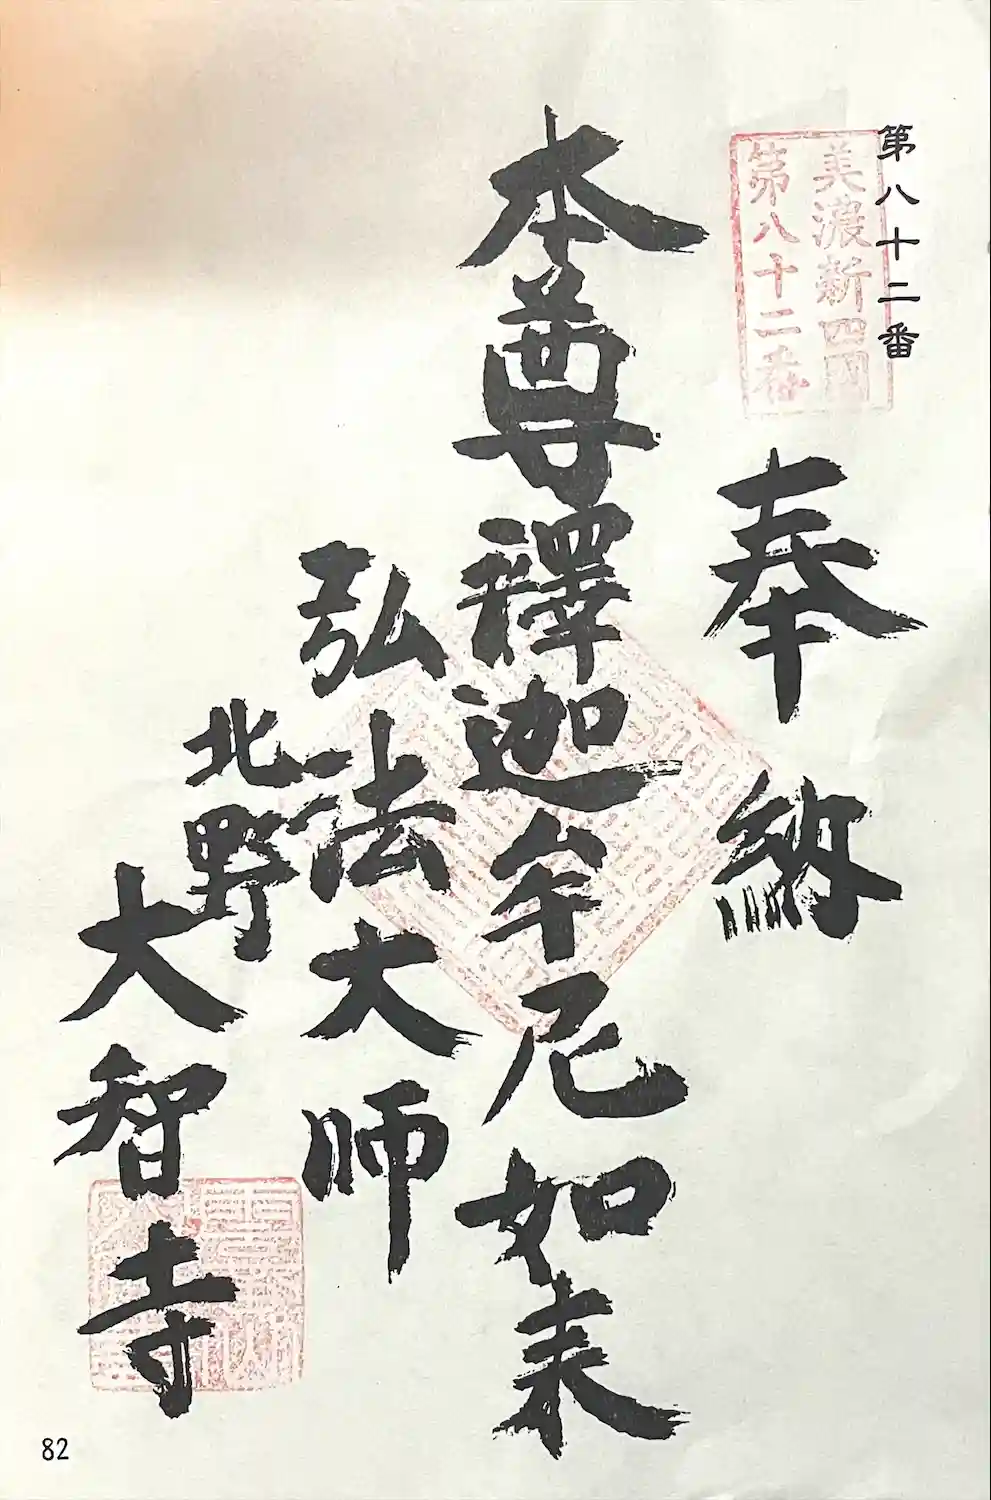 第八十二番
美濃新四国
第八十二番
奉納
本尊釋迦牟尼如来
弘法大師
北野
大智寺
82